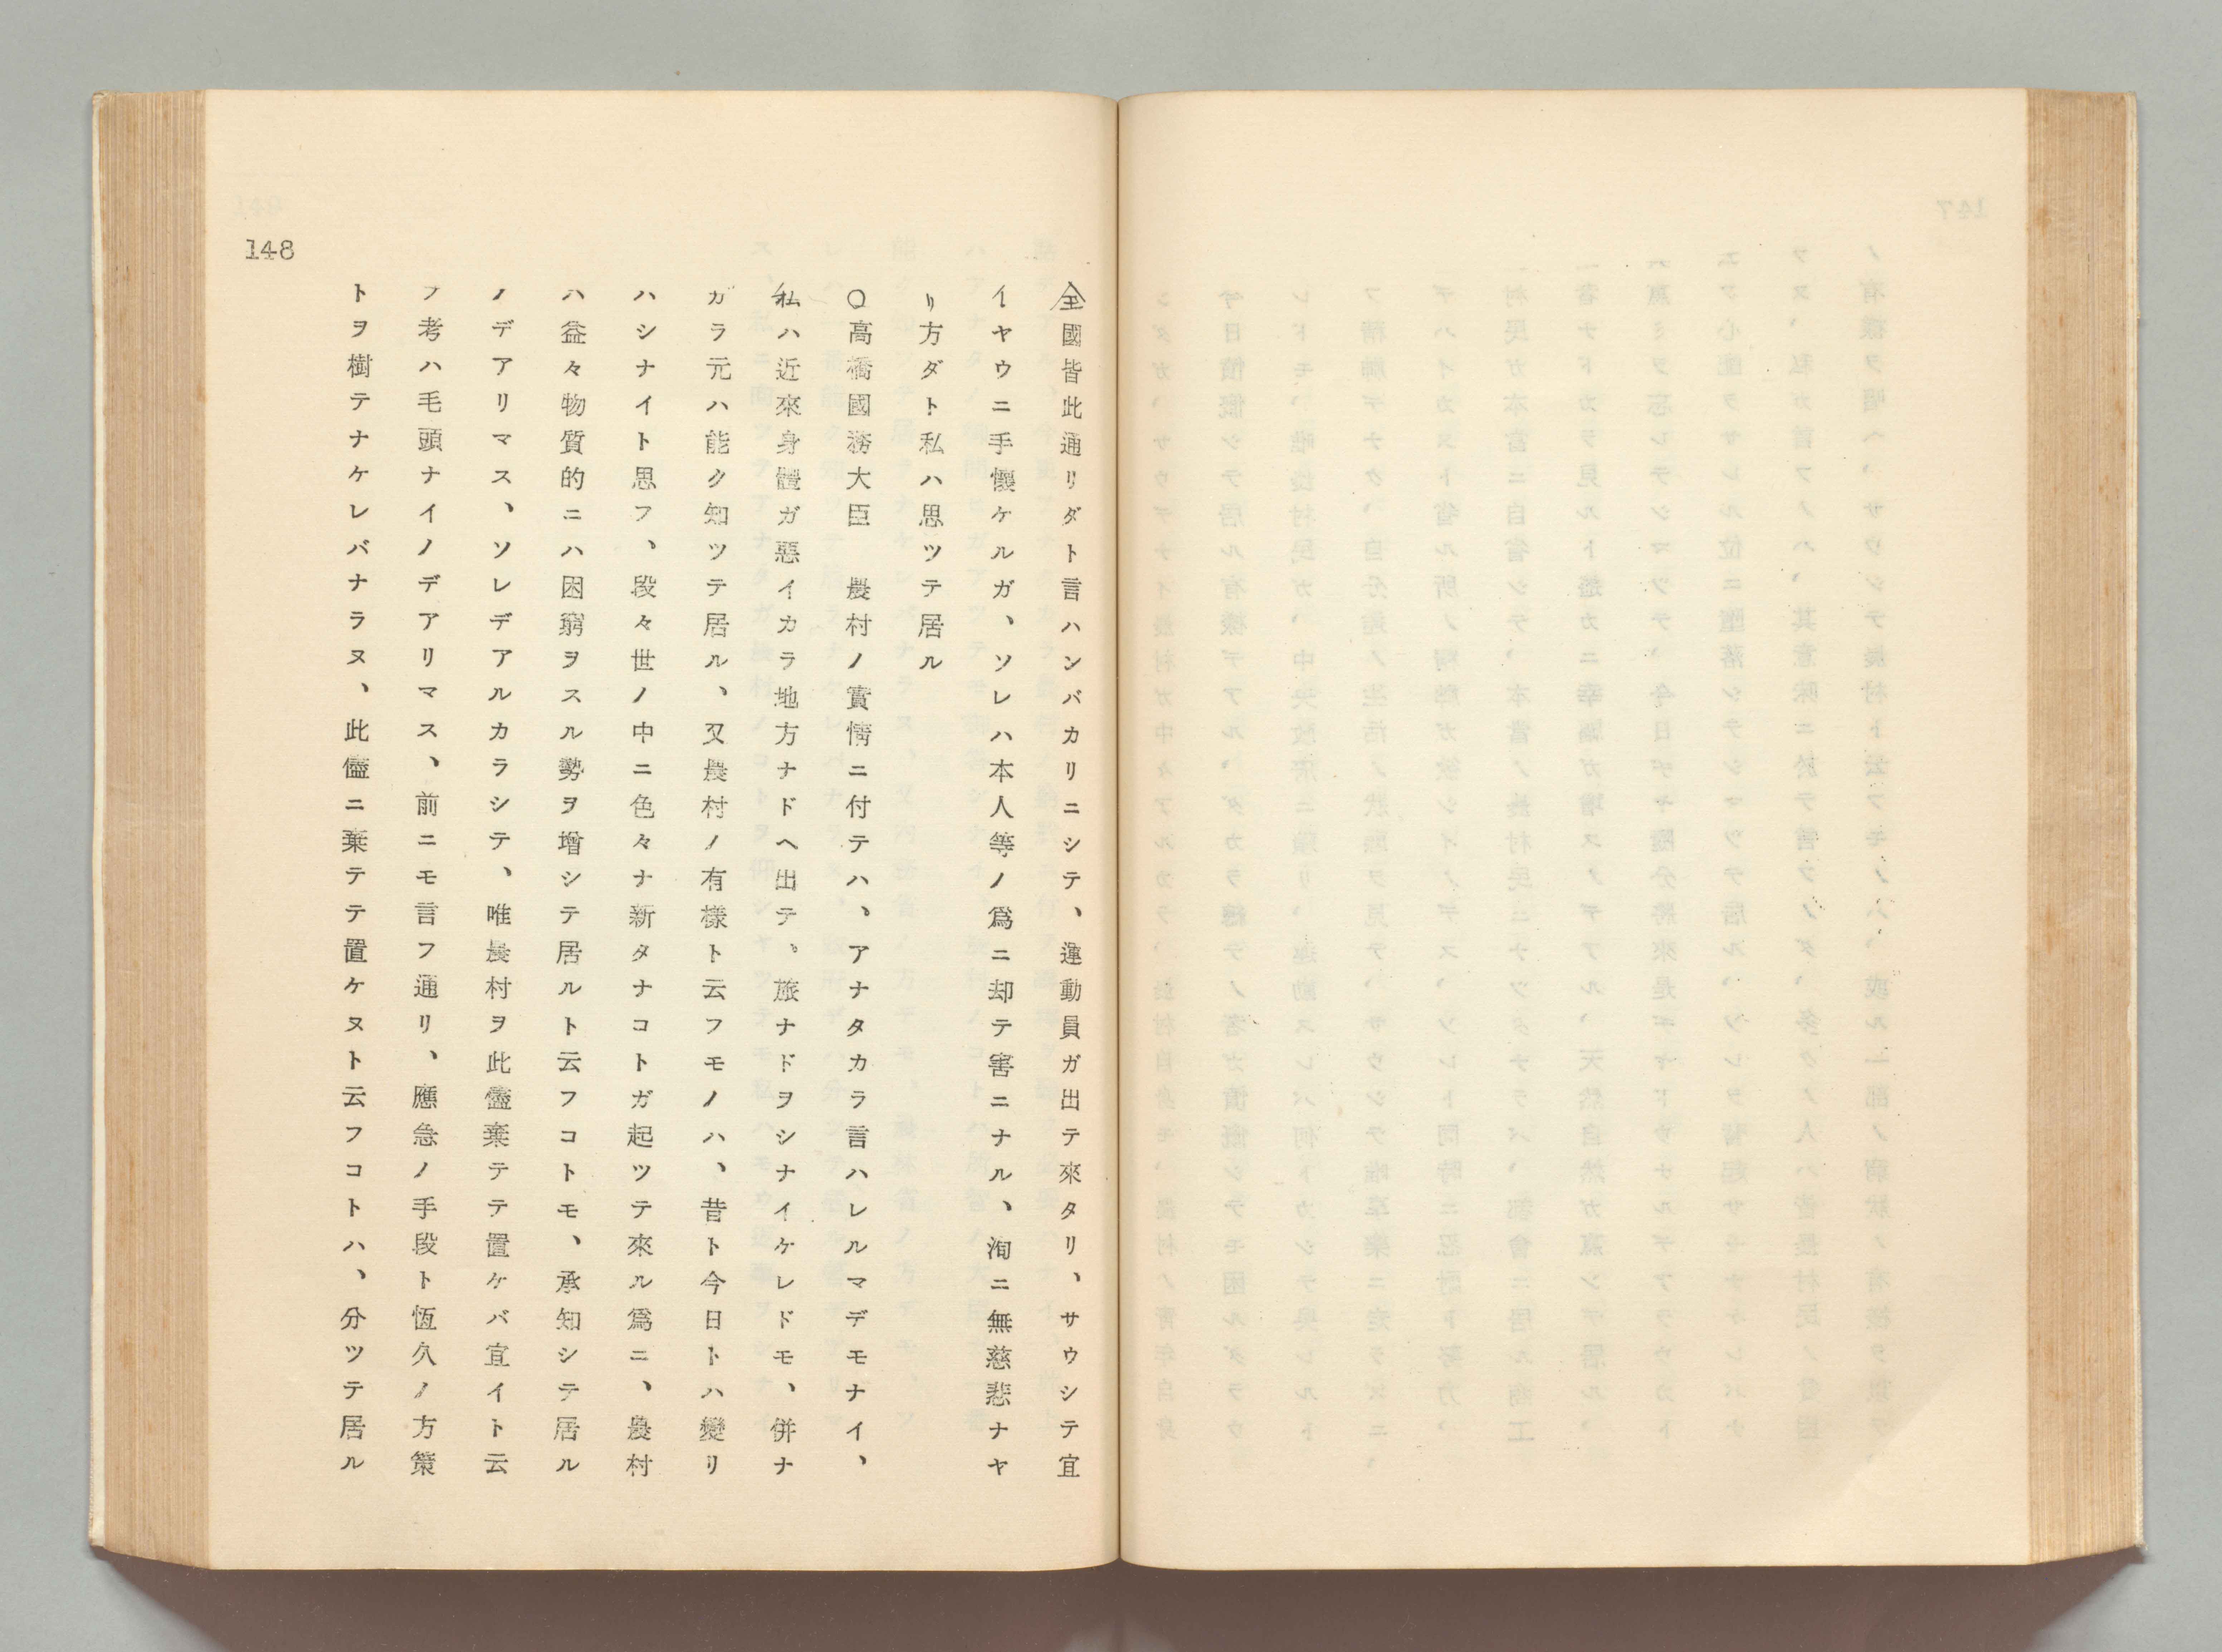 148
全國皆此通リダト言ハンバカリニシテ、運動員ガ出テ來タリ、サウシテ宜
イヤウニ手懷ケルガ、ソレハ本人等ノ爲ニ却テ害ニナル、洵ニ無慈悲ナヤ
リ方ダト私ハ思ツテ居ル
〇高橋國務大臣　農村ノ實情ニ付テハ、アナタカラ言ハレルマデモナイ、
私ハ近來身體ガ惡イカラ地方ナドヘ出テ、旅ナドヲシナイケレドモ、併ナ
ガラ元ハ能ク知ツテ居ル、又農村ノ有樣ト云フモノハ、昔ト今日トハ變リ
ハシナイト思フ、段々世ノ中ニ色々ナ新タナコトガ起ツテ來ル爲ニ、農村
ハ益々物質的ニハ困窮ヲスル勢ヲ增シテ居ルト云フコトモ、承知シテ居ル
ノデアリマス、ソレデアルカラシテ、唯農村ヲ此儘棄テテ置ケバ宜イト云
フ考ハ毛頭ナイノデアリマス、前ニモ言フ通リ、應急ノ手段ト恆久ノ方策
トヲ樹テナケレバナラヌ、此儘ニ棄テテ置ケヌト云フコトハ、分ツテ居ル